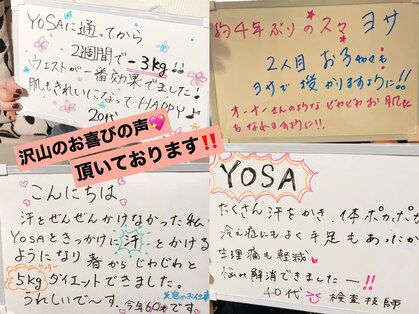 YOSAに通ってから
2週間で -3kg!!
ウエストが一番効果でました!
肌もきれいになってHAPPY♪
20代
約4年ぶりのスマ ヨサ
2人目 お子
ヨサで授かりますように!!
オーナーさんの じわじわ お肌に
もなれますように!!
沢山のお喜びの声💖
頂いております‼
こんにちは
汗をぜんぜんかけなかった私
YOSAときっかけに汗とかける
ようになり 着からじわじわと
5kgダイエットできました。
うれしいで〜す。今年60才です。
美容のお仕事
YOSA
たくさん汗をかき、体ポカポカ
冷え症にもよく手足もあったか
生理痛も軽減
悩み解消できましたー!!
40代 検査技師